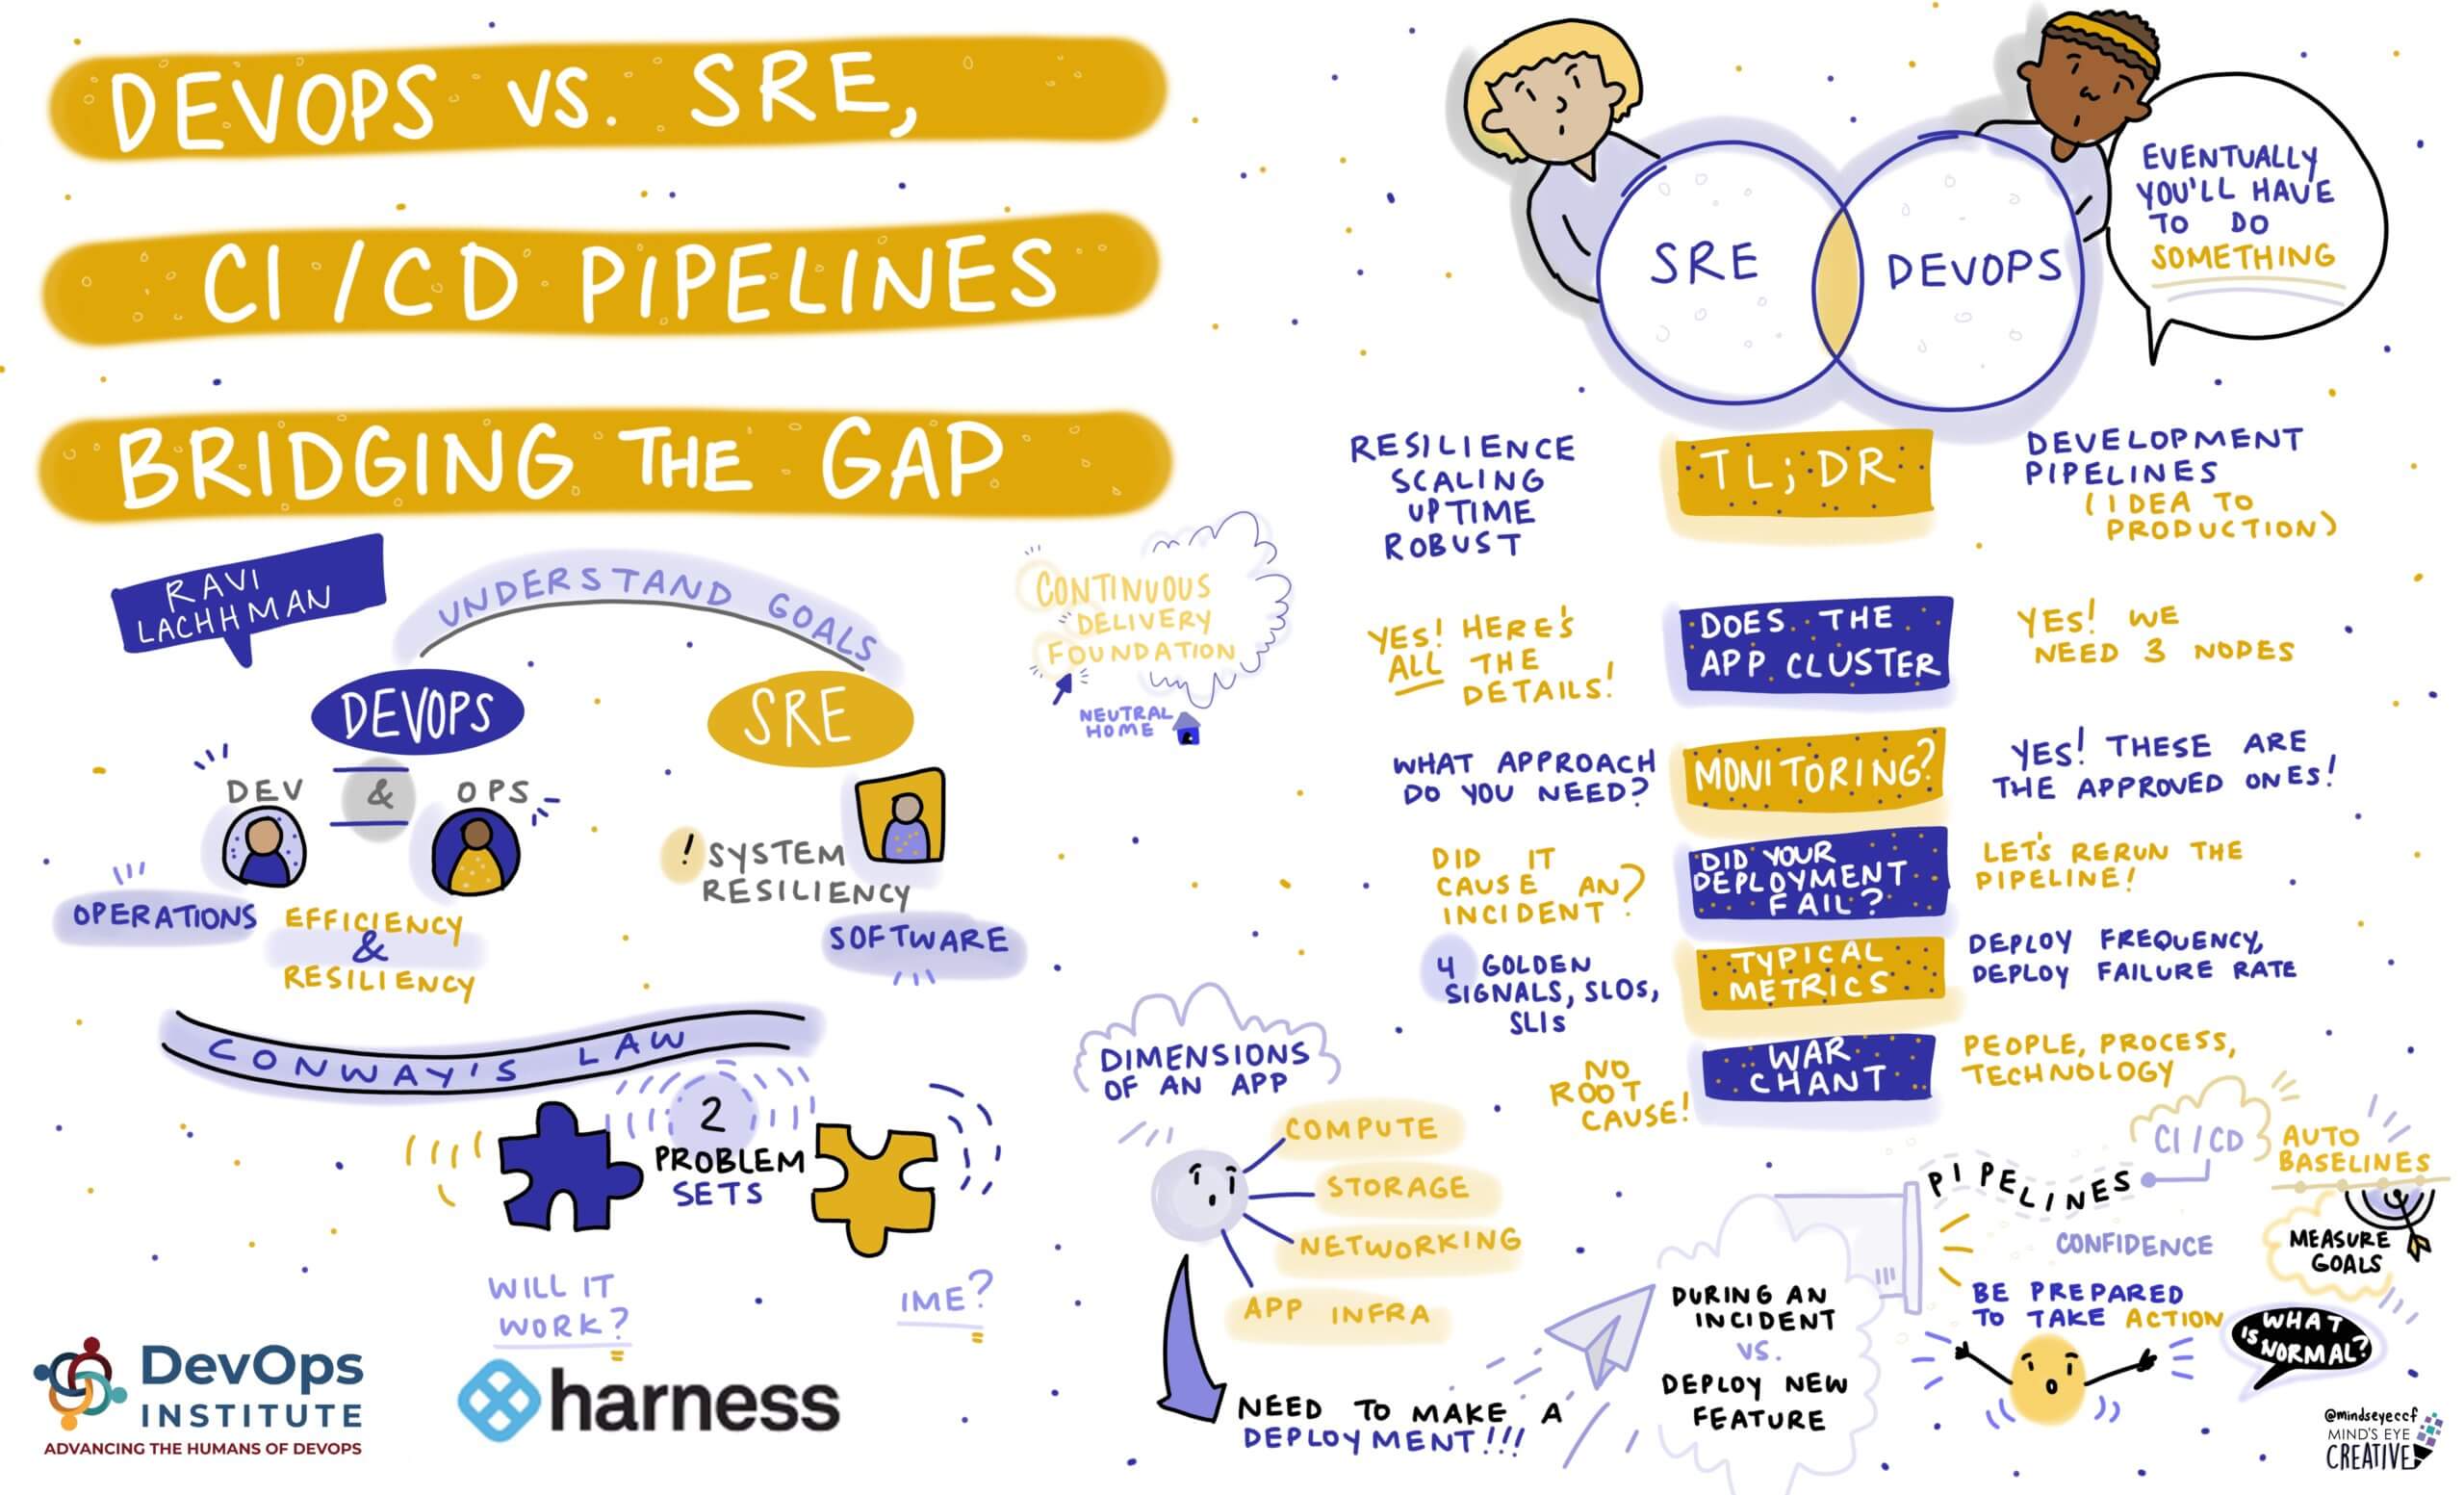 DEVOPS VS. SRE,
CI/CD PIPELINES
BRIDGING THE GAP
RAVI
LACHHMAN
UNDERSTAND GOALS
DEVOPS
SRE
DEV & OPS
OPERATIONS
EFFICIENCY
&
RESILIENCY
! SYSTEM
RESILIENCY
SOFTWARE
CONTINUOUS
DELIVERY
FOUNDATION
NEUTRAL
HOME
CONWAY'S LAW
2
PROBLEM
SETS
WILL IT
WORK?
IME?
DevOps
INSTITUTE
ADVANCING THE HUMANS OF DEVOPS
harness
SRE
DEVOPS
EVENTUALLY
YOU'LL HAVE
TO DO
SOMETHING
RESILIENCE
SCALING
UPTIME
ROBUST
TL;DR
DEVELOPMENT
PIPELINES
(IDEA TO
PRODUCTION)
YES! HERE'S
ALL THE
DETAILS!
DOES THE
APP CLUSTER
YES! WE
NEED 3 NODES
WHAT APPROACH
DO YOU NEED?
MONITORING?
YES! THESE ARE
THE APPROVED ONES!
DID IT
CAUSE AN
INCIDENT?
DID YOUR
DEPLOYMENT
FAIL?
LET'S RERUN THE
PIPELINE!
4 GOLDEN
SIGNALS, SLOS,
SLIs
TYPICAL
METRICS
DEPLOY FREQUENCY,
DEPLOY FAILURE RATE
NO
ROOT
CAUSE!
WAR
CHANT
PEOPLE, PROCESS,
TECHNOLOGY
DIMENSIONS
OF AN APP
COMPUTE
STORAGE
NETWORKING
APP INFRA
NEED TO MAKE A
DEPLOYMENT!!!
DURING AN
INCIDENT
VS.
DEPLOY NEW
FEATURE
PIPELINES
CI/CD
AUTO
BASELINES
CONFIDENCE
MEASURE
GOALS
BE PREPARED
TO TAKE ACTION
WHAT
IS NORMAL?
@mindseyeccf
MIND'S EYE
CREATIVE